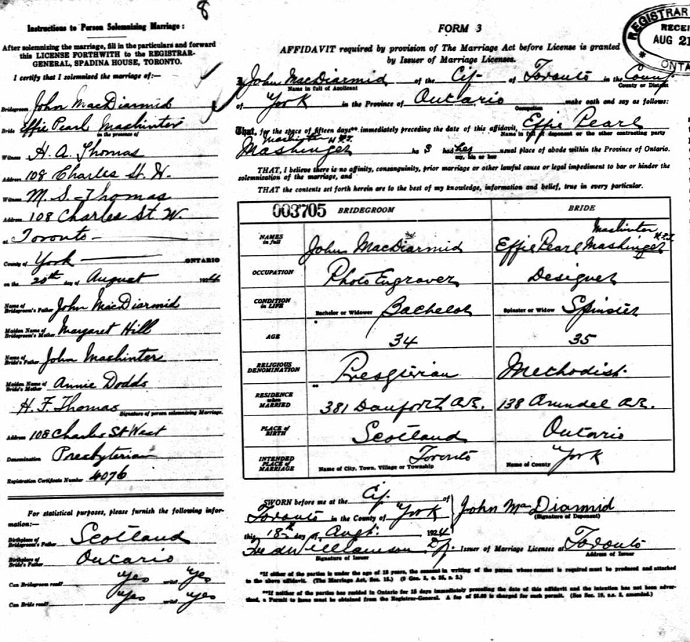 8
Instructions to Person Solemnizing Marriage:
After solemnizing the marriage, fill in the particulars and forward
this LICENSE FORTHWITH to the REGISTRAR-
GENERAL, SPADINA HOUSE, TORONTO.
I certify that I solemnized the marriage of:—
Bridegroom John MacDiarmid
Bride Effie Pearl Mashinter
in the presence of
Witness H. A. Thomas
Address 108 Charles St. W.
Witness M. S. Thomas
Address 108 Charles St. W.
at Toronto
County of York ONTARIO
on the 20th day of August 1924
Name of Bridegroom's Father John MacDiarmid
Maiden Name of Bridegroom's Mother Margaret Hill
Name of Bride's Father John Mashinter
Maiden Name of Bride's Mother Annie Dodds
H. F. Thomas
Signature of person solemnizing Marriage.
Address 108 Charles St West
Denomination Presbyterian
Registration Certificate Number 4076
For statistical purposes, please furnish the following infor-
mation:—
Birthplace of Bridegroom's Father Scotland
Birthplace of Bride's Father Ontario
Can Bridegroom read? yes write yes
Can Bride read? yes yes
FORM 3
REGISTRAR
RECEI
AUG 21
ONTA
AFFIDAVIT required by provision of The Marriage Act before License is granted
by Issuer of Marriage Licenses.
I, John MacDiarmid of the City of Toronto in the County
Name in full of Applicant County or District
of York in the Province of Ontario make oath and say as follows:
Occupation
That, for the space of fifteen days** immediately preceding the date of this affidavit, Effie Pearl
Name in full of deponent or the other contracting parties
Mashinter
Mashinger had her usual place of abode within the Province of Ontario.
my, his or her
THAT, I believe there is no affinity, consanguinity, prior marriage or other lawful cause or legal impediment to bar or hinder the
solemnization of the marriage, and
THAT the contents set forth herein are to the best of my knowledge, information and belief, true in every particular.
003705 BRIDEGROOM BRIDE
NAMES in full John MacDiarmid Effie Pearl Mashinger Mashinter
OCCUPATION Photo Engraver Designer
CONDITION in LIFE Bachelor or Widower Bachelor Spinster or Widow Spinster
AGE 34 35
RELIGIOUS DENOMINATION Presgterian Methodist
RESIDENCE when MARRIED 381 Danforth av. 138 Arundel av.
PLACE OF BIRTH Scotland Ontario
INTENDED PLACE of MARRIAGE Toronto York
Name of City, Town, Village or Township Name of County
SWORN before me at the City of
Toronto in the County of York John MacDiarmid
(Signature of Deponent)
this 18th day of Augt. 1924
Williamson Issuer of Marriage Licenses Toronto
Signature of Issuer Address of Issuer
*If either of the parties is under the age of 18 years, the consent in writing of the person whose consent is required must be produced and attached
to the above affidavit. (The Marriage Act, Sec. 15.)
**If neither of the parties has resided in Ontario for 15 days immediately preceding the date of this affidavit and the intention has not been adver-
tised, a Permit to Issue must be obtained from the Registrar-General. A fee of $5.00 is charged for such permit.